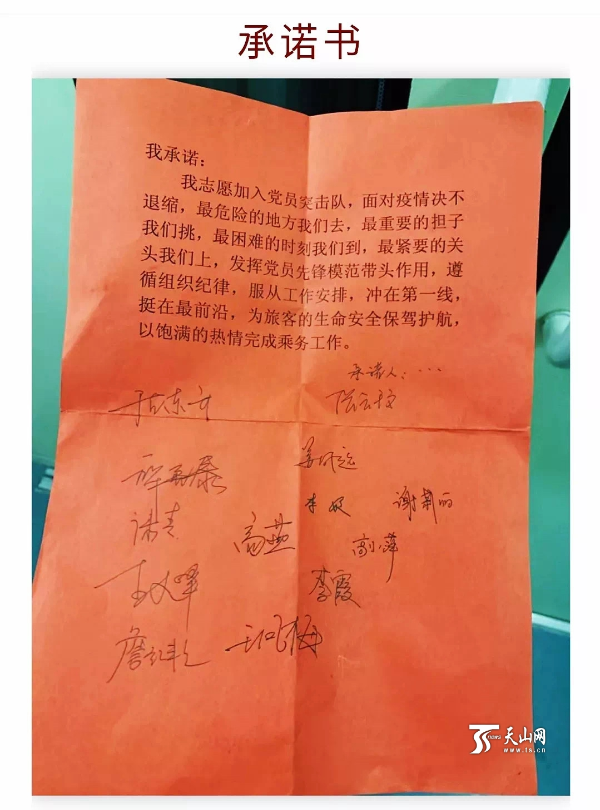 承诺书
我承诺：
我志愿加入党员突击队，面对疫情决不
退缩，最危险的地方我们去，最重要的担子
我们挑，最困难的时刻我们到，最紧要的关
头我们上，发挥党员先锋模范带头作用，遵
循组织纪律，服从工作安排，冲在第一线，
挺在最前沿，为旅客的生命安全保驾护航，
以饱满的热情完成乘务工作。
承诺人：...
李霞
高燕
天山网
www.ts.cn